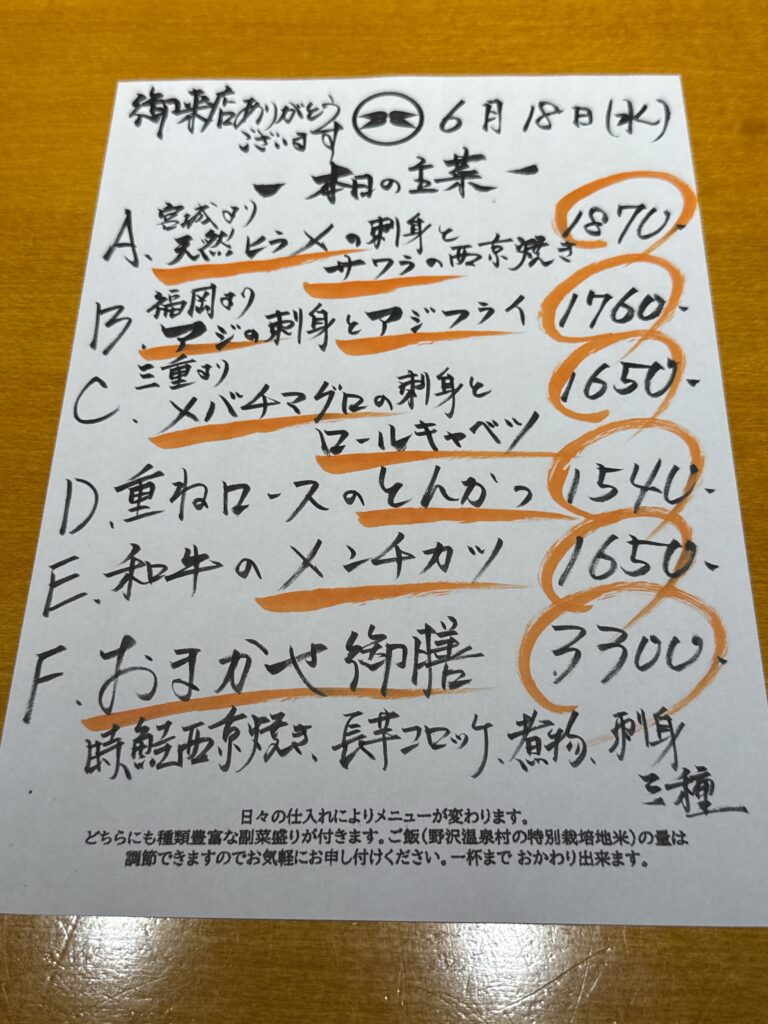 御来店ありがとう
ございます
6月18日(水)
- 本日の主菜 -
宮城より
A. 天然ヒラメの刺身と
サワラの西京焼き
1870-
福岡より
B. アジの刺身とアジフライ 1760-
三重より
C. メバチマグロの刺身と 1650-
ロールキャベツ
D. 重ねロースのとんかつ 1540-
E. 和牛のメンチカツ 1650-
F. おまかせ御膳 3300-
時鮭西京焼き、長芋コロッケ、煮物、刺身
三種
日々の仕入れによりメニューが変わります。
どちらにも種類豊富な副菜盛りが付きます。ご飯(野沢温泉村の特別栽培地米)の量は
調節できますのでお気軽にお申し付けください。一杯まで おかわり出来ます。